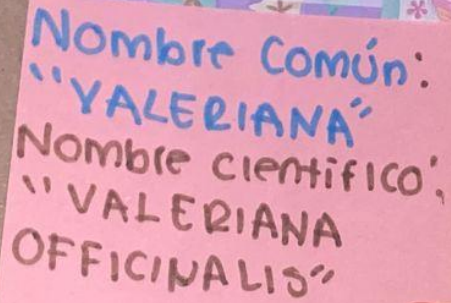 Nombre Común:
"VALERIANA"
Nombre cientifico:
"VALERIANA
OFFICINALIS"